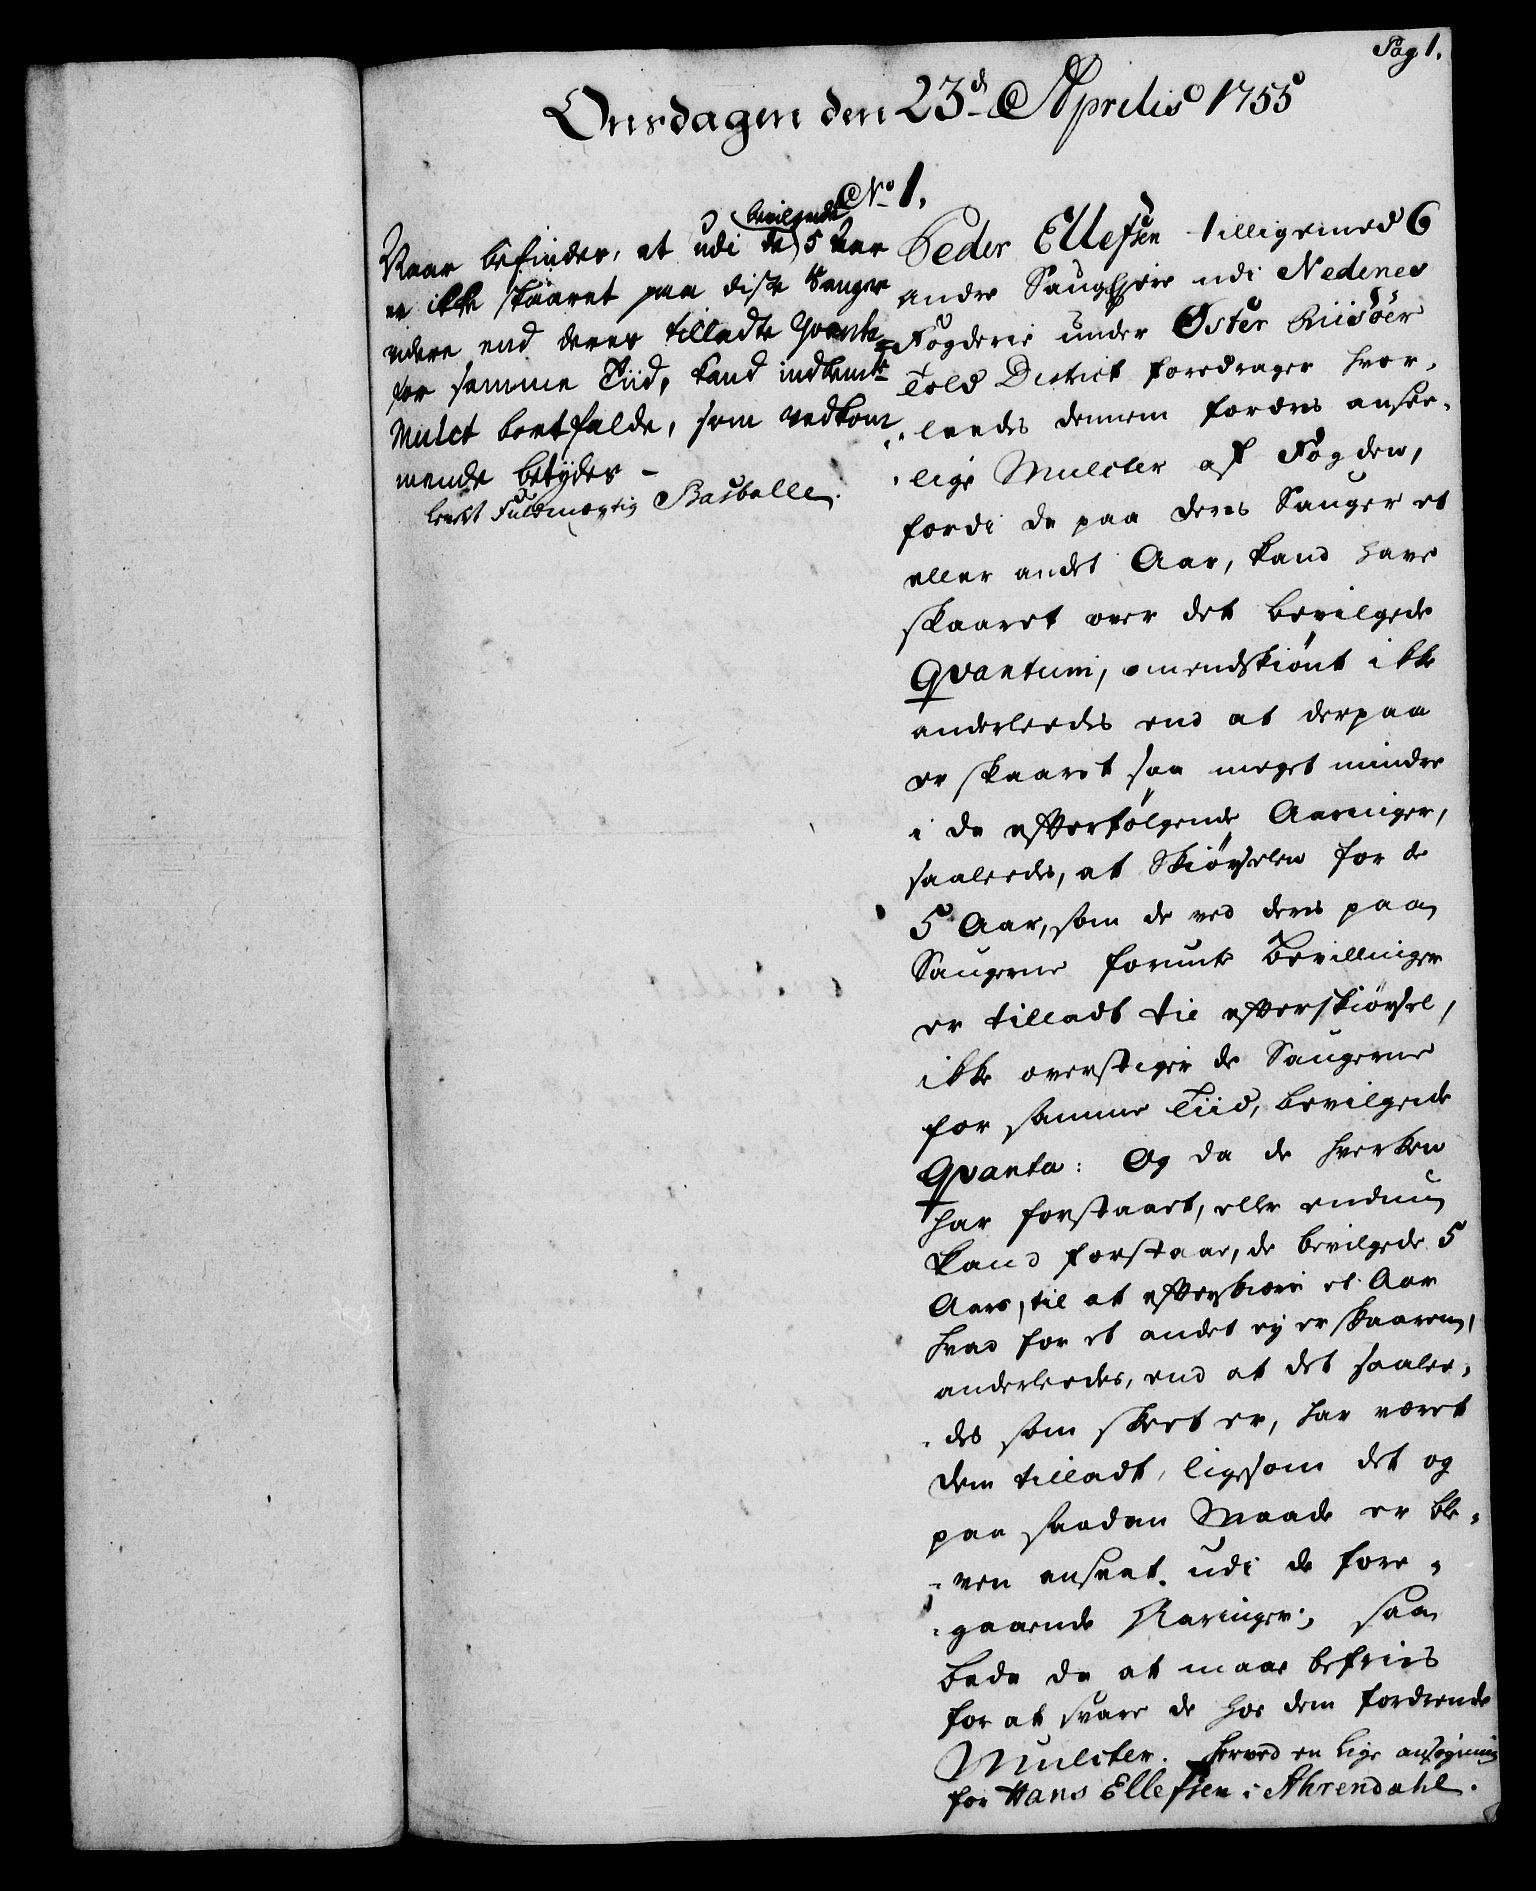 Pag 1.
Onsdagen den 23d Aprilis 1755
No 1.
Naar befindes, at udi de bevilgede 5 Aar
er ikke skaaret paa disse Sauger
videre end deres tilladte Qvanta
for samme Tiid, kand indbemte
Mulct bortfalde, som vedkom
mende betydes -
Fuldmægtig Basballe.
Peder Ellefsen tilligemed 6
andre Saugejere udi Nedenes
Fogderie under Øster Riisöer
Told District foredrager hvor-
leedes dennem fordres ansee-
lige Mulcter af Fogden,
fordi de paa deres Sauger et
eller andet Aar, kand have
skaaret over det bevilgede
Qvantum, omendskiönt ikke
anderleedes end at derpaa
er skaaret saa meget mindre
i de efterfølgende Aaringer,
saaleedes, at Skiørselen for de
5 Aar, som de ved deres paa
Saugerne forundte Bevillinger
er tilladt til efterskiørsel,
ikke overstiger de Saugerne
for samme Tiid, bevilgede
Qvanta: Og da de hverken
har forstaaet, eller endnu
kand forstaae, de bevilgede 5
Aars, til at efterskiære et Aar
hvad for et andet ey er skaaren,
anderleedes, end at det saalee-
des som skeet er, har været
dem tilladt, ligesom det og
paa saadan Maade er ble-
ven anseet udi de fore-
gaaende Aaringer; saa
bede de at maae befries
for at svare de hos dem fordrende
Mulcter. Herved en lige ansøgning
for Hans Ellefsen i Ahrendahl.